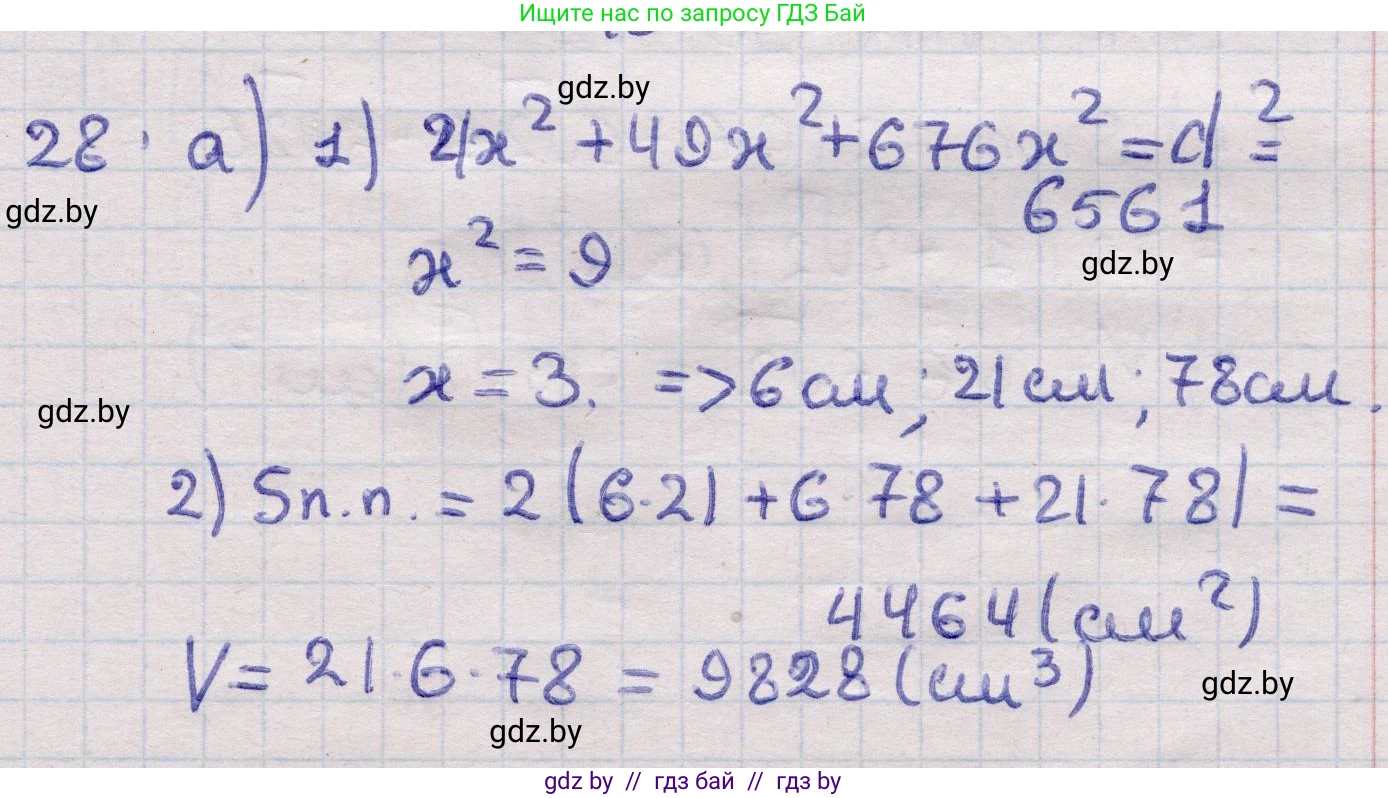 Ищите нас по запросу ГДЗ Бай
gdz.by
28. а) 1) 4x² + 49x² + 676x² = d² =
6561
gdz.by
gdz.by
x² = 9
x = 3. => 6 см; 21 см; 78 см.
gdz.by
2) Sп.п. = 2 (6·21 + 6·78 + 21·78) =
4464 (см²)
V = 21·6·78 = 9828 (см³)
gdz.by
gdz.by
gdz by // гдз бай // гдз by